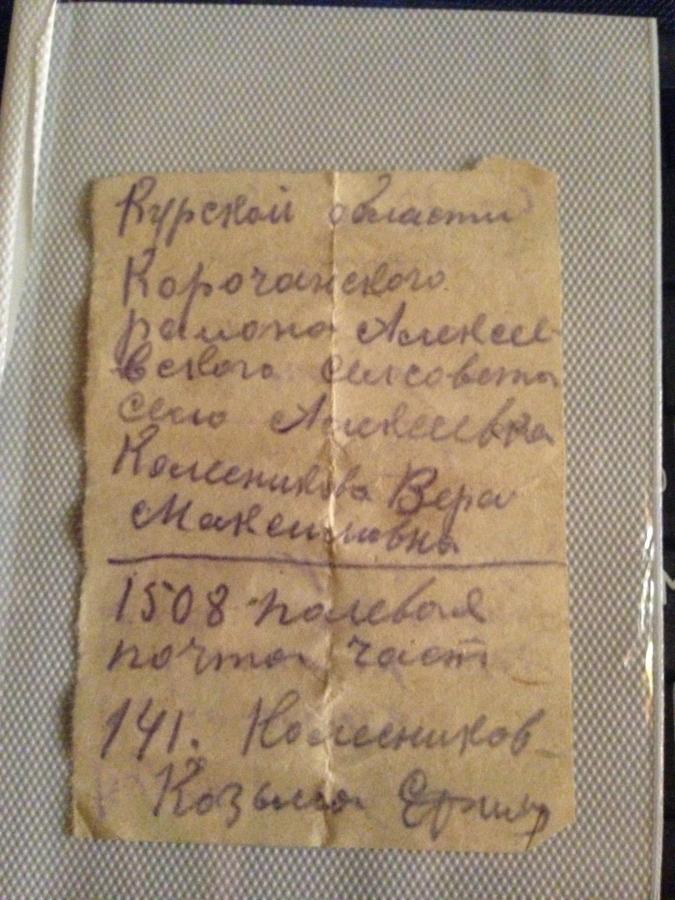 Курской области
Корочанского
района Алексее-
вского сельсовета
село Алексеевка
Колесникова Вера
Максимовна
1508 полевая
почта част
141. Колесников
Козьма